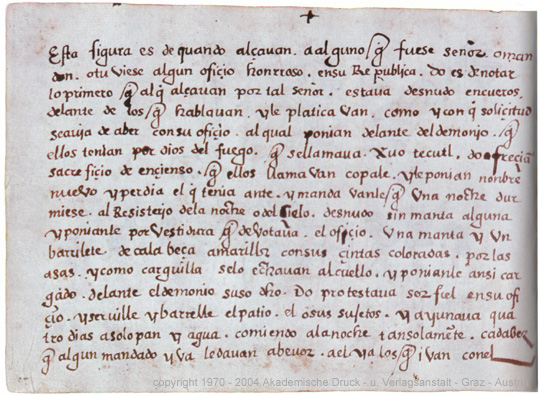 Esta figura es de quando alçauan. a alguno / q̃ fuese señor. o man
don. o tu viese algun ofiçio honrroso. en su Re publica. Do es denotar
lo primero q̃ al q̃ alçauan por tal señor. estaua desnudo en cueros.
delante de los q̃ hablauan. y le platica van. como y con q̃ solicitud
se auja de aber con su ofiçio. al qual ponian delante del demonjo. q̃
ellos tenian por dios del fuego. q̃ se llamaua. Xuo tecutl. do ofreçiã
sacre ficio de ençienso. q̃ ellos llama van copale. y le ponian nonbre
nuevo y perdia el q̃ tenia ante. y manda vanle q̃ Vna noche dur
miese. al Resisterjo de la noche o del çielo. desnudo sin manta alguna
y poniante por vestidura q̃ de votaua. el ofiçio. Vna manta y Vn
barrilete de cala beça amarillo con sus çintas coloradas. por las
asas. y como carguilla se lo echauan al cuello. y ponianle ansi car
gado. delante el demonio suso dho. Do protestaua ser fiel en su ofi
çio. y seruille y barrelle el patio. el o sus sujetos. y ayunaua qua
tro dias a solo pan y agua. comiendo a la noche tan solamēte. cada bez
q̃ algun mandado y va lo dauan a beuor. a el y a los q̃ ivan con el
copyright 1970 - 2004 Akademische Druck - u. Verlagsanstalt - Graz - Austri